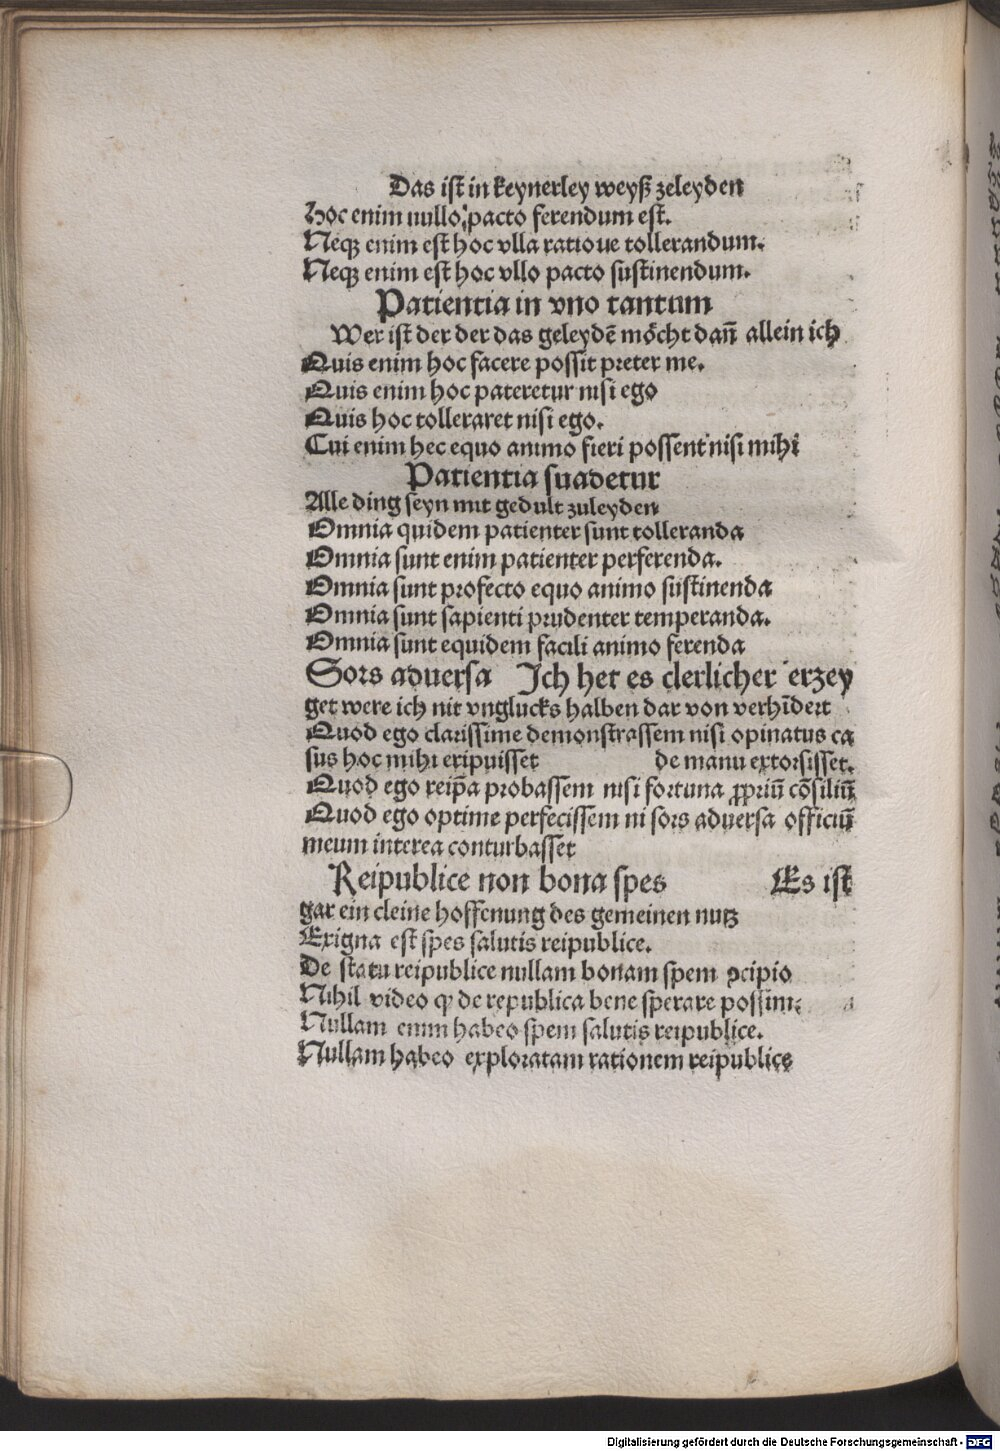 Das ist in keynerley weyß zeleyden
Hoc enim nullo pacto ferendum est.
Neqꝫ enim est hoc vlla ratioue tollerandum.
Neqꝫ enim est hoc vllo pacto sustinendum.
Patientia in vno tantum
Wer ist der der das geleydē möcht dañ allein ich
Quis enim hoc facere possit preter me.
Quis enim hoc pateretur nisi ego
Quis hoc tolleraret nisi ego.
Cui enim hec equo animo fieri possent nisi mihi
Patientia suadetur
Alle ding seyn mit gedult zuleyden
Omnia quidem patienter sunt tolleranda
Omnia sunt enim patienter perferenda.
Omnia sunt profecto equo animo sustinenda
Omnia sunt sapienti prudenter temperanda.
Omnia sunt equidem facili animo ferenda
Sors aduersa Ich het es clerlicher erzey
get were ich nit vnglucks halben dar von verhīdert
Quod ego clarissime demonstrassem nisi opinatus ca
sus hoc mihi eripuisset de manu extorsisset.
Quod ego reip̄a probassem nisi fortuna ꝓpriū cōsiliū
Quod ego optime perfecissem ni sors aduersa officiū
meum interea conturbasset
Reipublice non bona spes Es ist
gar ein cleine hoffenung des gemeinen nutz
Exigna est spes salutis reipublice.
De statu reipublice nullam bonam spem ꝯcipio
Nihil video ꝙ de republica bene sperare possim.
Nullam enim habeo spem salutis reipublice.
Nullam habeo exploratam rationem reipublice
Digitalisierung gefördert durch die Deutsche Forschungsgemeinschaft - DFG